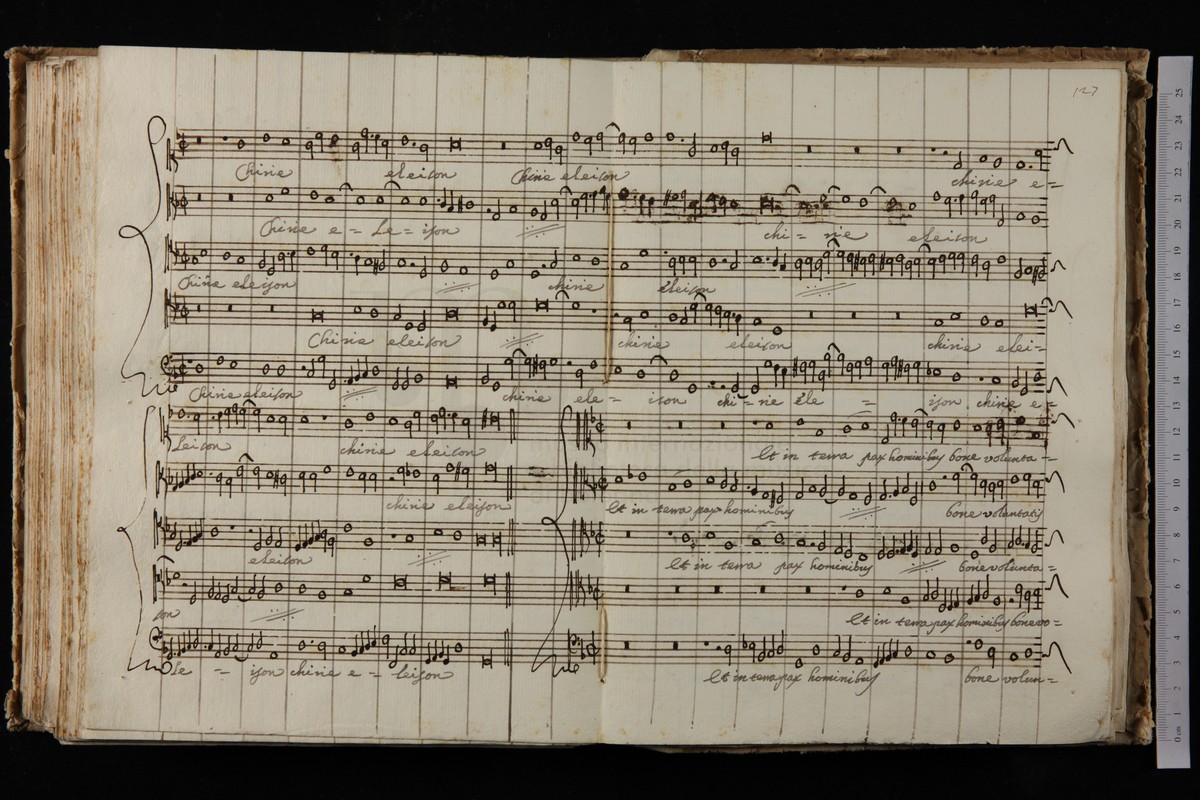 127
Chirie eleison Chirie eleison chirie e=
Chirie e= Le= ison chi= rie eleison
Chirie eleison chirie eleison
Chirie eleison chirie eleison chirie elei=
Chirie eleison chirie ele= ison chi=rie ele = ison chirie e=
Leison chirie eleison Et in terra pax hominibus bone volunta=
chirie eleison Et in terra pax hominibus bone voluntatis
eleison Et in terra pax hominibus bone volunta=
son Et in terra pax hominibus bone vo=
Le = ison chirie e= leison Et in terra pax hominibus bone volun=